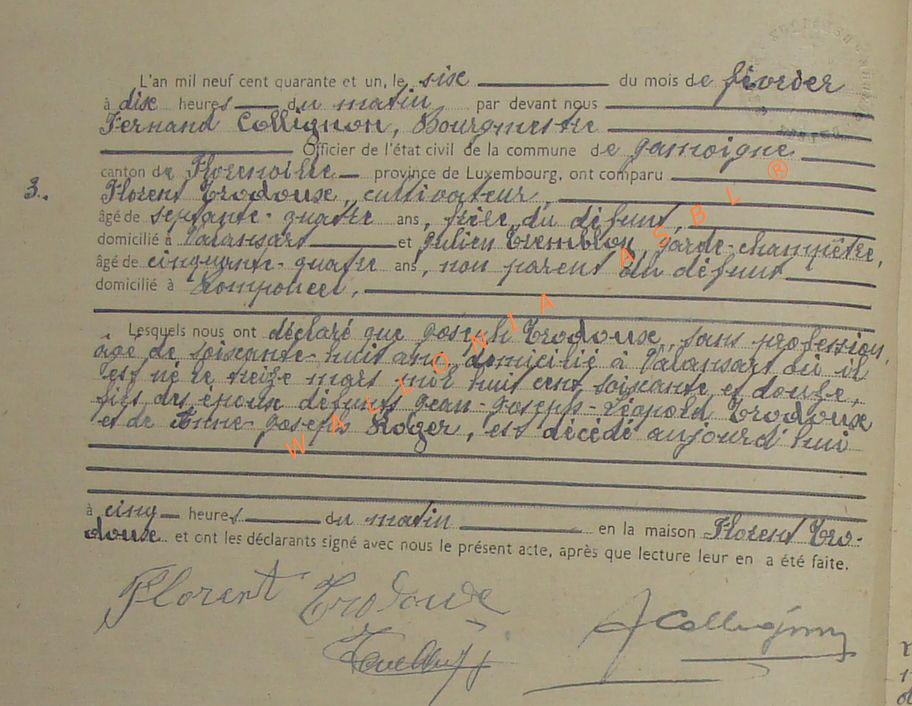 L'an mil neuf cent quarante et un, le six du mois de février
à dix heures du matin par devant nous
Fernand Collignon, Bourgmestre
Officier de l'état civil de la commune de Jamoigne
canton de Florenville province de Luxembourg, ont comparu
3. Florent Trodoux, cultivateur
âgé de septante-quatre ans, frère du défunt,
domicilié à Valansart et Julien Tremblon garde-champêtre,
âgé de cinquante-quatre ans, non parent du défunt
domicilié à Romponcel,
Lesquels nous ont déclaré que Joseph Trodoux, sans profession,
âgé de soixante-huit ans, domicilié à Valansart où il
est né le treize mars mil huit cent soixante et douze,
fils des époux défunts Jean-Joseph-Léopold Trodoux
et de Anne-Joseph Roger, est décédé aujourd'hui
à cinq heures du matin en la maison Florent Tro-
doux et ont les déclarants signé avec nous le présent acte, après que lecture leur en a été faite.
Florent Trodoux
FCollignon
WALLONIA ASBL ®